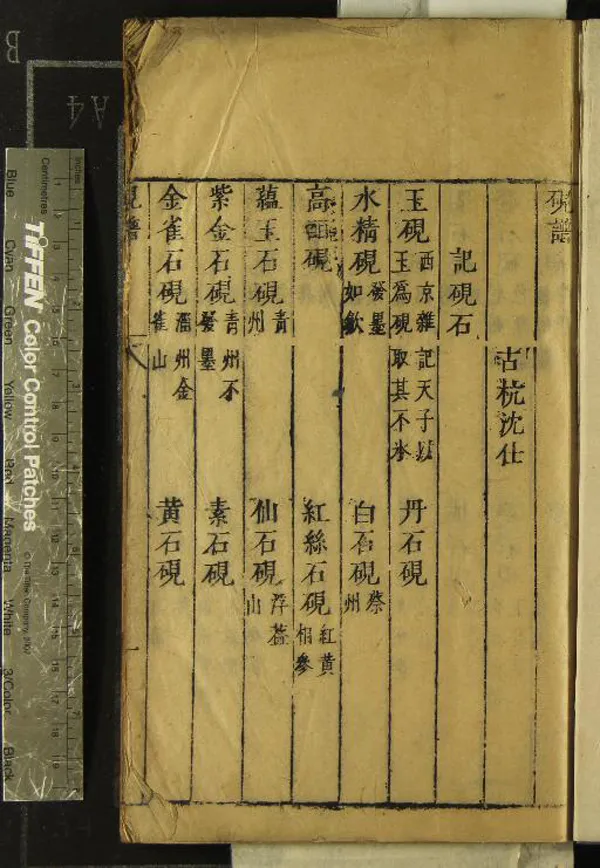 硯譜
古杭沈仕
記硯石
玉硯 西京雜記天子以玉爲硯取其不氷 丹石硯
水精硯 發墨如歙 白石硯 蔡州
高硯 紅絲石硯 紅黃相參
蘊玉石硯 青州 仙石硯 浮蓋山
紫金石硯 青州不發墨 素石硯
金雀石硯 淄州金雀山 黃石硯
硯譜
一
B
A4
Inches
Centimetres
TIFFEN Color Control Patches
© The Tiffen Company, 2007
Blue Cyan Green Yellow Red Magenta White 3/Color Black